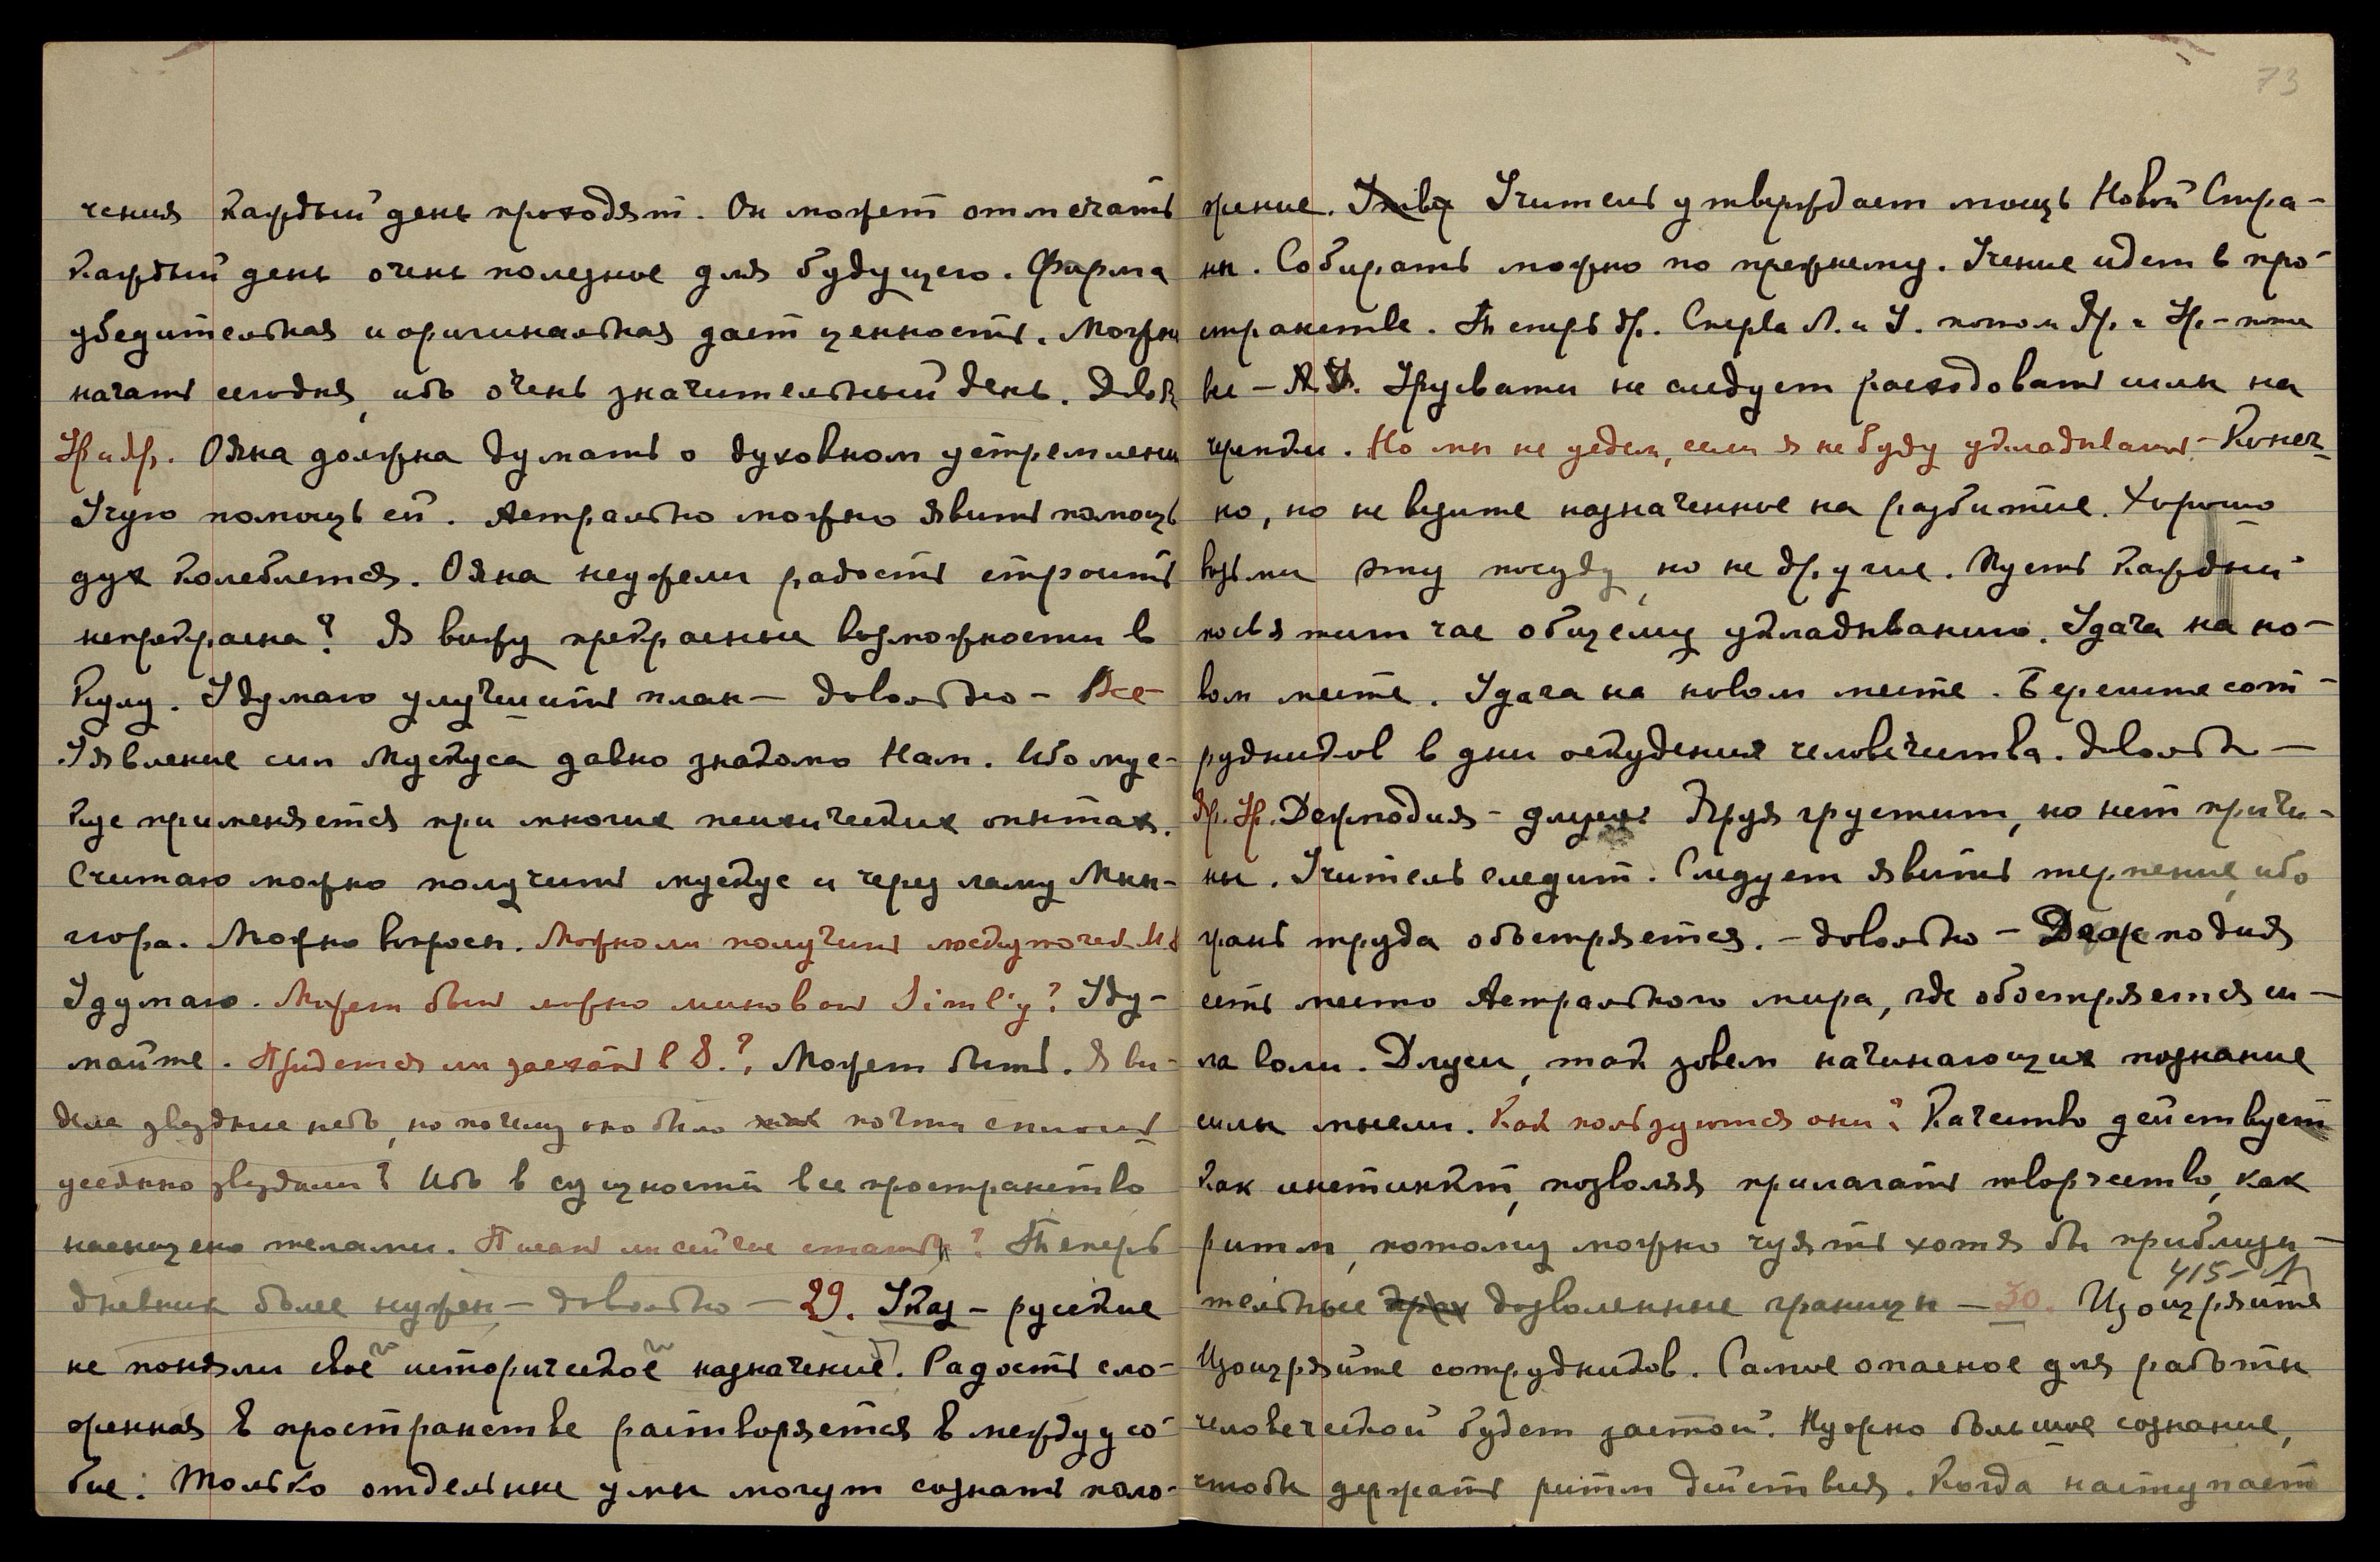 чения каждый день проходят. Он может отмечать
каждый день очень полезное для будущего. Форма
убедительная и оригинальная дает ценность. Можно
начать сегодня, ибо очень значительный день. Довол
Ояна должна думать о духовном устремлении
Учую помощь ей. Астрально можно явить помощь
дух колеблется. Ояна неужели радость строить
непрекрасна? Я вижу прекрасные возможности в
Кулу. Удумаю улучшить план — довольно —
Уявление сил мускуса давно знакомо Нам. Ибо мус-
кус применяется при многих психических опытах.
Считаю можно получить мускус и через ламу Мин-
гюра. Можно вопросы. Можно ли получить
Удумаю. Может быть можно миновать Simly? Уду-
майте. Придется ли заехать в S.? Может быть. Я ви-
дела звездное небо, но почему оно было почти сплошь
усеянно звездами? Ибо в сущности все пространство
насыщено телами. Писать ли сейчас статью? Теперь
дневник более нужен — довольно — 29. Указ — русские
не поняли свое историческое назначение. Радость сло-
женная в пространстве растворяется в междуусо-
бие. Только отдельные умы могут сознать поло-
73
жение. Учитель утверждает мощь Новой Стра-
ны. Собирать можно по прежнему. Учение идет в про-
странстве. Теперь др. Сперва Л. и У. потом Яр. и Ур. —
Урусвати не следует расходовать силы на
Но мы не уедем, если я не буду укладывать — Конеч-
но, но не везите назначенное на разбитие. Хорошо
возьми эту посуду, но не другие. Пусть каждый
посвятит час общему укладыванию. Удача на но-
вом месте. Удача на новом месте. Берегите сот-
рудников в дни оскудения человечества. Довольно —
Яр. Ур. Декподия — Друя грустит, но нет причи-
ны. Учитель следит. Следует явить терпение, ибо
грань труда обостряется. — довольно —
есть место Астрального мира, где обостряется си-
ла воли. так зовем начинающих познание
силы мысли. Как пользуются они? Качество действует
как инстинкт, позволяя прилагать творчество, как
ритм, потому можно чуять хотя бы приблизи-
415 —
тельные дозволенные границы — 30. Изощряйте
Изощряйте сотрудников. Самое опасное для работы
человеческой будет застой. Нужно большое сознание,
чтобы держать ритм действия. Когда наступает